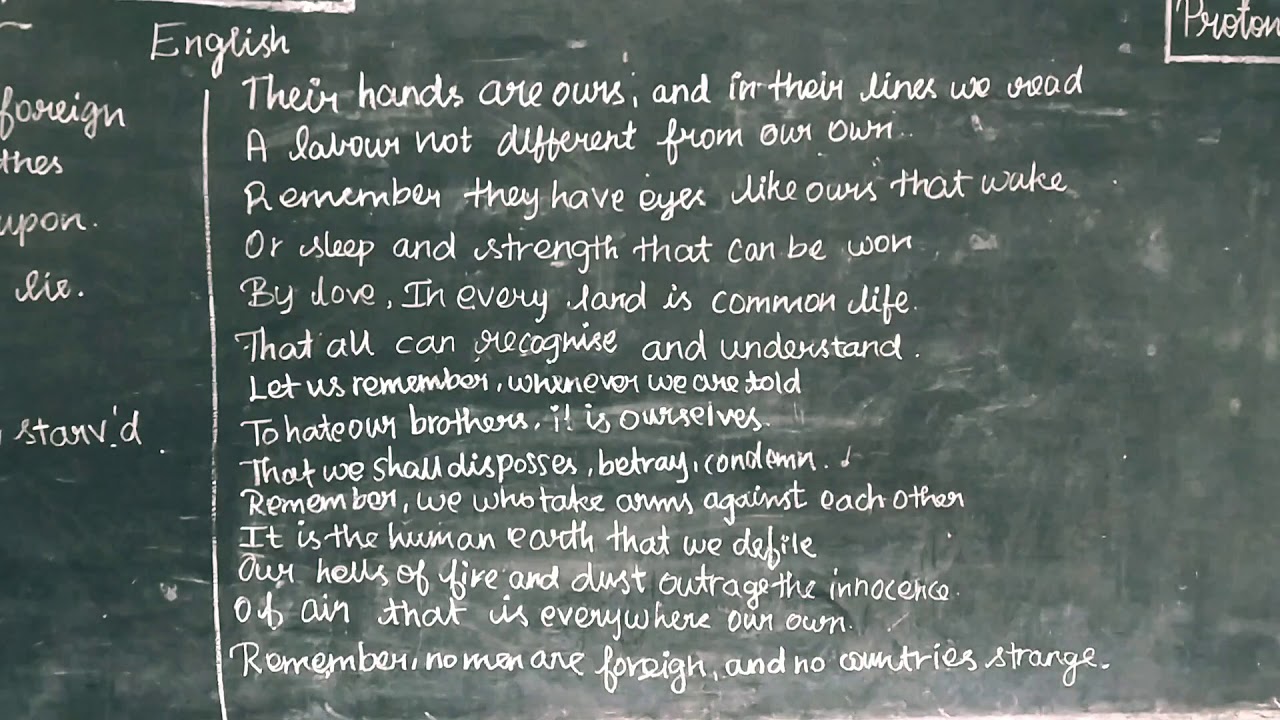 English
Proton
foreign
thes
upon.
lie.
starv'd.
Their hands are ours, and in their lines we read
A labour not different from our own..
Remember they have eyes like ours that wake
Or sleep and strength that can be won
By love, In every land is common life.
That all can recognise and understand.
Let us remember, whenever we are told
To hate our brothers, it is ourselves.
That we shall disposses, betray, condemn.
Remember, we who take arms against each other
It is the human earth that we defile
Our hells of fire and dust outrage the innocence.
Of air that is everywhere our own.
Remember, no men are foreign, and no countries strange.